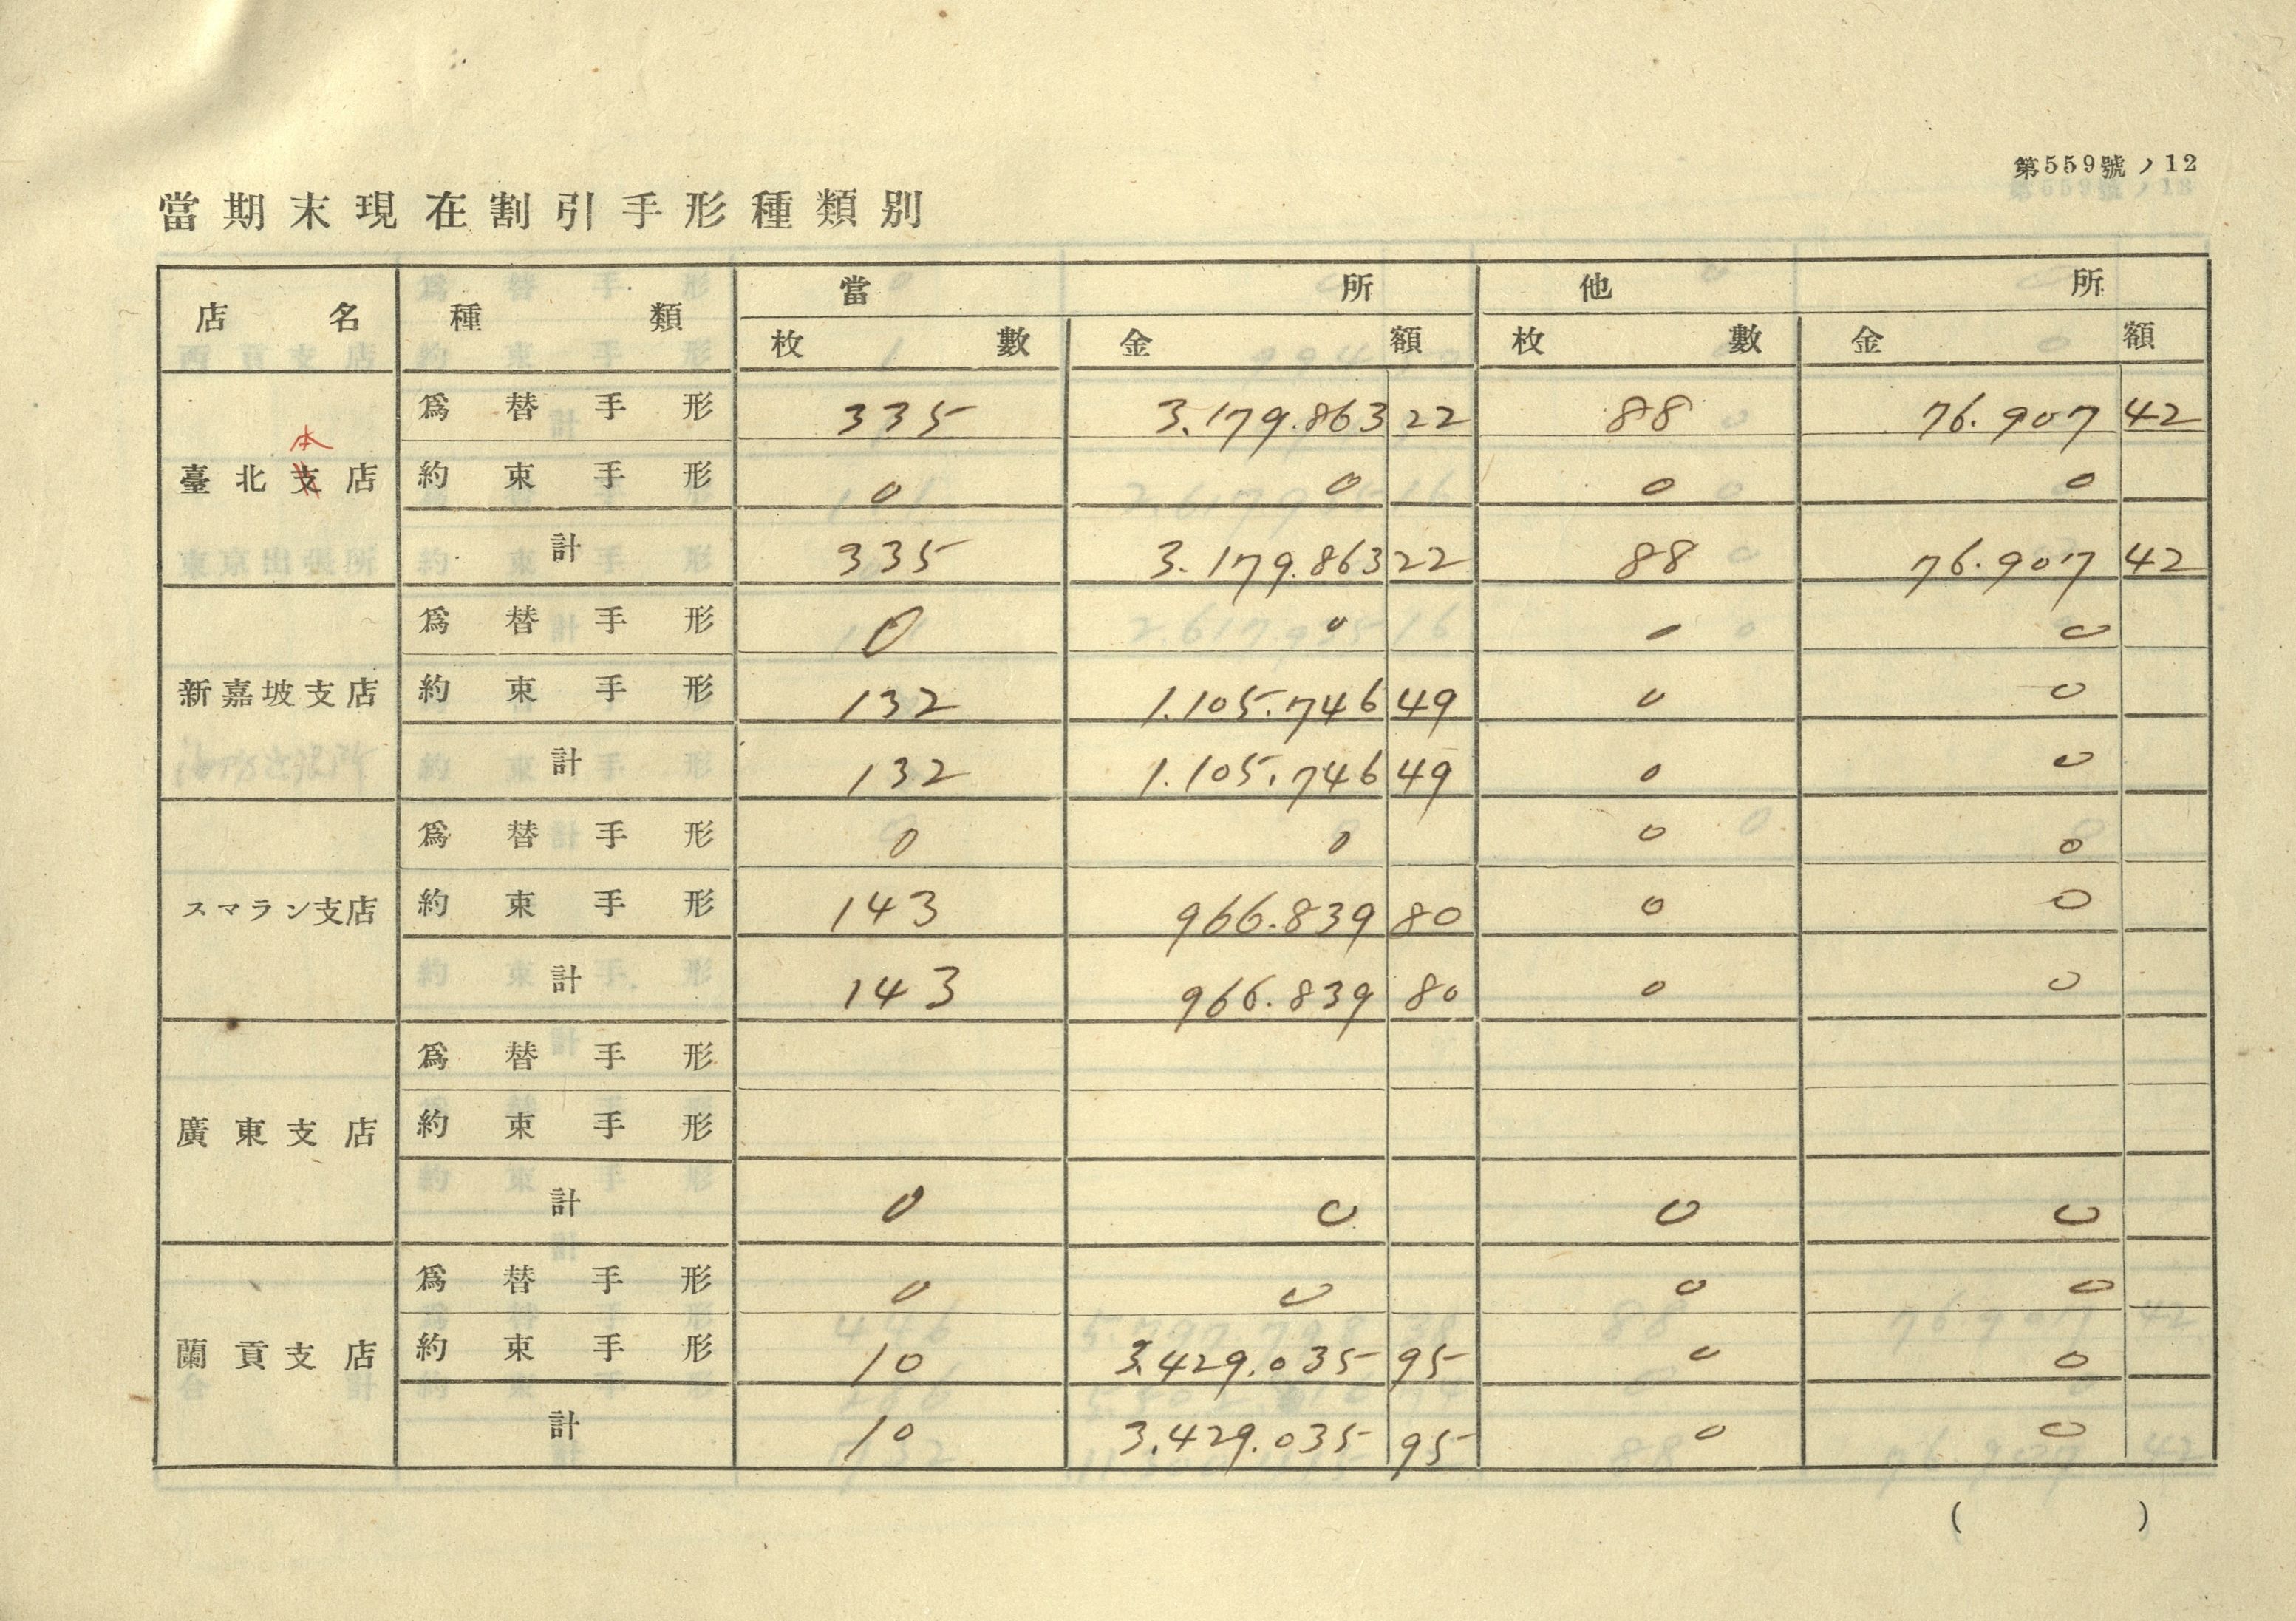 第559號ノ12
當期末現在割引手形種類別
店名 種類 當所 他所
枚數 金額 枚數 金額
爲替手形 335 3.179.863 22 88 76.907 42
本
臺北支店 約束手形 0 0 0 0
計 335 3.179.863 22 88 76.907 42
爲替手形 0 0 0 0
新嘉坡支店 約束手形 132 1.105.746 49 0 0
計 132 1.105.746 49 0 0
爲替手形 0 0 0 0
スマラン支店 約束手形 143 966.839 80 0 0
計 143 966.839 80 0 0
爲替手形
廣東支店 約束手形
計 0 0 0 0
爲替手形 0 0 0 0
蘭貢支店 約束手形 10 3.429.035 95 0 0
計 10 3.429.035 95 0 0
( )